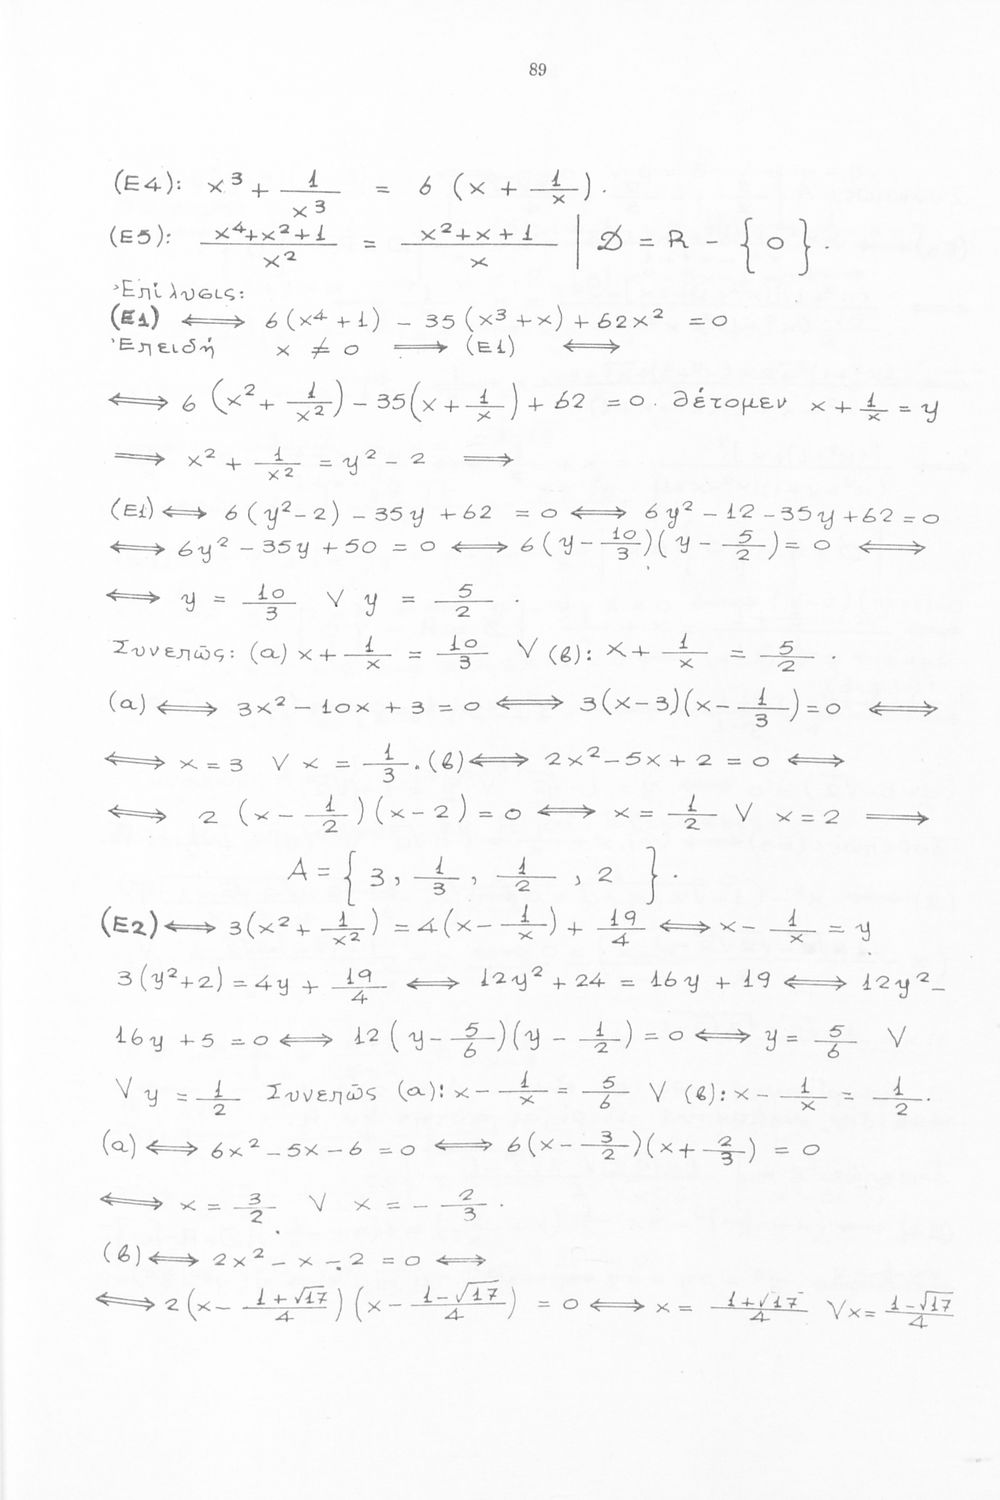 89
(E4): x³ + 1/x³ = 6 (x + 1/x).
(E5): (x⁴+x²+1)/x² = (x²+x+1)/x | D = R - {0}.
Ἐπίλυσις:
(E1) ⟺ 6(x⁴+1) - 35(x³+x) + 62x² = 0
Ἐπειδή x ≠ 0 ⟹ (E1) ⟺
⟺ 6 (x² + 1/x²) - 35(x + 1/x) + 62 = 0. θέτομεν x + 1/x = y
⟹ x² + 1/x² = y² - 2 ⟹
(E1) ⟺ 6(y²-2) - 35y + 62 = 0 ⟺ 6y² - 12 - 35y + 62 = 0
⟺ 6y² - 35y + 50 = 0 ⟺ 6(y - 10/3)(y - 5/2) = 0 ⟺
⟺ y = 10/3 V y = 5/2.
Συνεπῶς: (α) x + 1/x = 10/3 V (β): x + 1/x = 5/2.
(α) ⟺ 3x² - 10x + 3 = 0 ⟺ 3(x-3)(x - 1/3) = 0 ⟺
⟺ x = 3 V x = 1/3. (β) ⟺ 2x² - 5x + 2 = 0 ⟺
⟺ 2 (x - 1/2)(x - 2) = 0 ⟺ x = 1/2 V x = 2 ⟹
A = {3, 1/3, 1/2, 2}.
(E2) ⟺ 3(x² + 1/x²) = 4(x - 1/x) + 19/4 ⟺ x - 1/x = y
3(y²+2) = 4y + 19/4 ⟺ 12y² + 24 = 16y + 19 ⟺ 12y² -
16y + 5 = 0 ⟺ 12(y - 5/6)(y - 1/2) = 0 ⟺ y = 5/6 V
V y = 1/2 Συνεπῶς (α): x - 1/x = 5/6 V (β): x - 1/x = 1/2.
(α) ⟺ 6x² - 5x - 6 = 0 ⟺ 6(x - 3/2)(x + 2/3) = 0
⟺ x = 3/2 V x = - 2/3.
(β) ⟺ 2x² - x - 2 = 0 ⟺
⟺ 2(x - (1+√17)/4)(x - (1-√17)/4) = 0 ⟺ x = (1+√17)/4 V x = (1-√17)/4